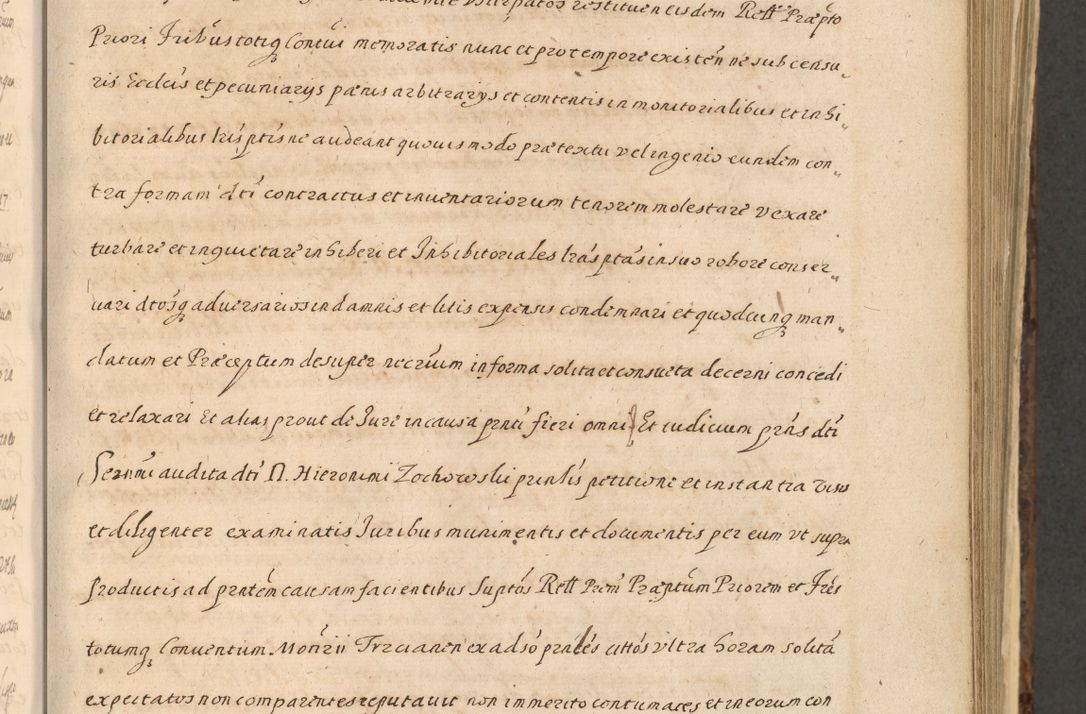 Vsurpatos restituen eisdem Rctt Præpto
Priori Fribus totiq Contui memoratis nunc et pro tempore existen ne sub censu„
ris Eccleis et pecuniarijs pænis arbitrarijs et contentis in monitorialibus et inhi„
bitorialibus lris ptis ne audeant quouis modo prætextu vel ingenio eundem con„
tra formam dti contractus et inuentariorum tenorem molestare vexare
turbare et inquietare inhiberi et Inhibitoriales lras ptas in suo robore conser„
uari dtosq aduersarios in damnis et litis expensis condemnari et quodcunq man„
datum et Præceptum desuper necrium in forma solita et consueta decerni concedi
et relaxari Et alias prout de Iure in causa pnti fieri omni Et iudicium pnns dti
Sermi audita dti N. Hieronimi Zochowski pnnlis petitione et instantia visis
et diligenter examinatis Iuribus munimentis et documentis per eum vt supra
Productis ad pntem causam facientibus Suptos Rctt Prem Præptum Priorem et Fres
totumq Conuentum Monrii Trzcianen ex adso pnnles cittos vltra horam solita
expectatos non comparentes reputauit non immerito contumaces et in eorum con